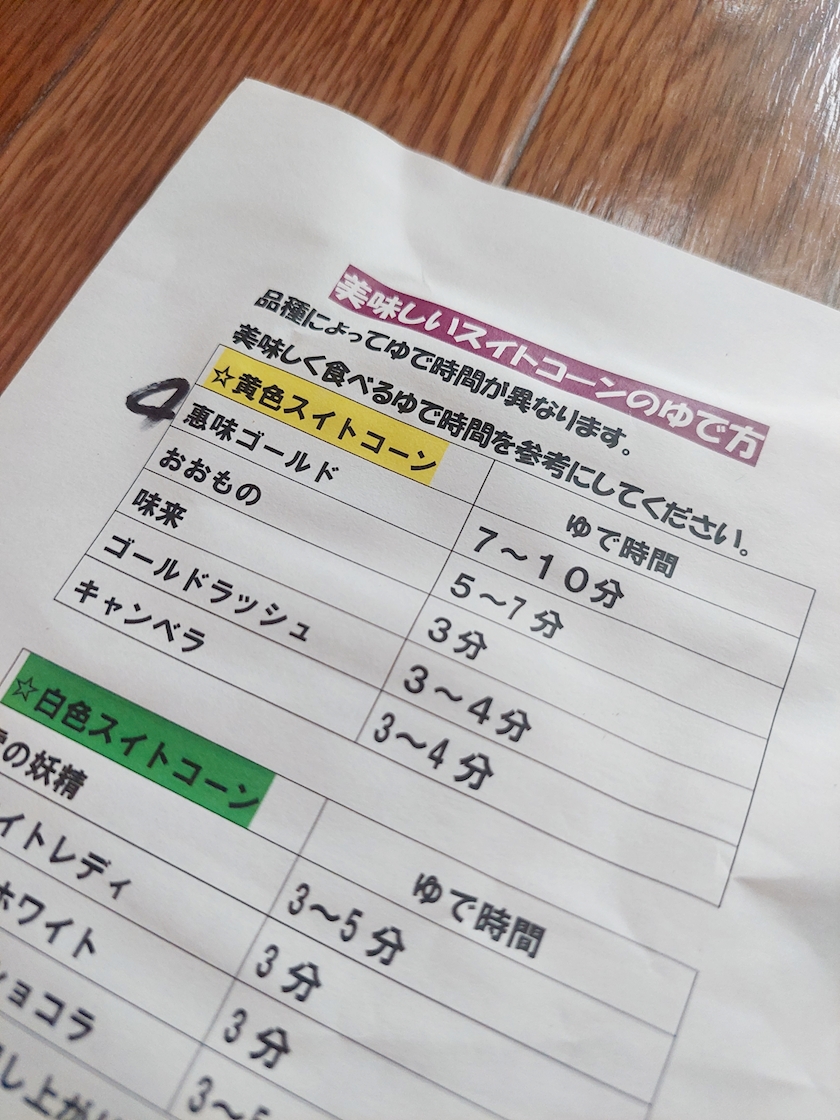 美味しいスイトコーンのゆで方
品種によってゆで時間が異なります。
美味しく食べるゆで時間を参考にしてください。
☆黄色スイトコーン ゆで時間
恵味ゴールド 7～10分
おおもの 5～7分
味来 3分
ゴールドラッシュ 3～4分
キャンベラ 3～4分
☆白色スイトコーン ゆで時間
の妖精 3～5分
イトレディ 3分
ホワイト 3分
ショコラ 3～5
し上が